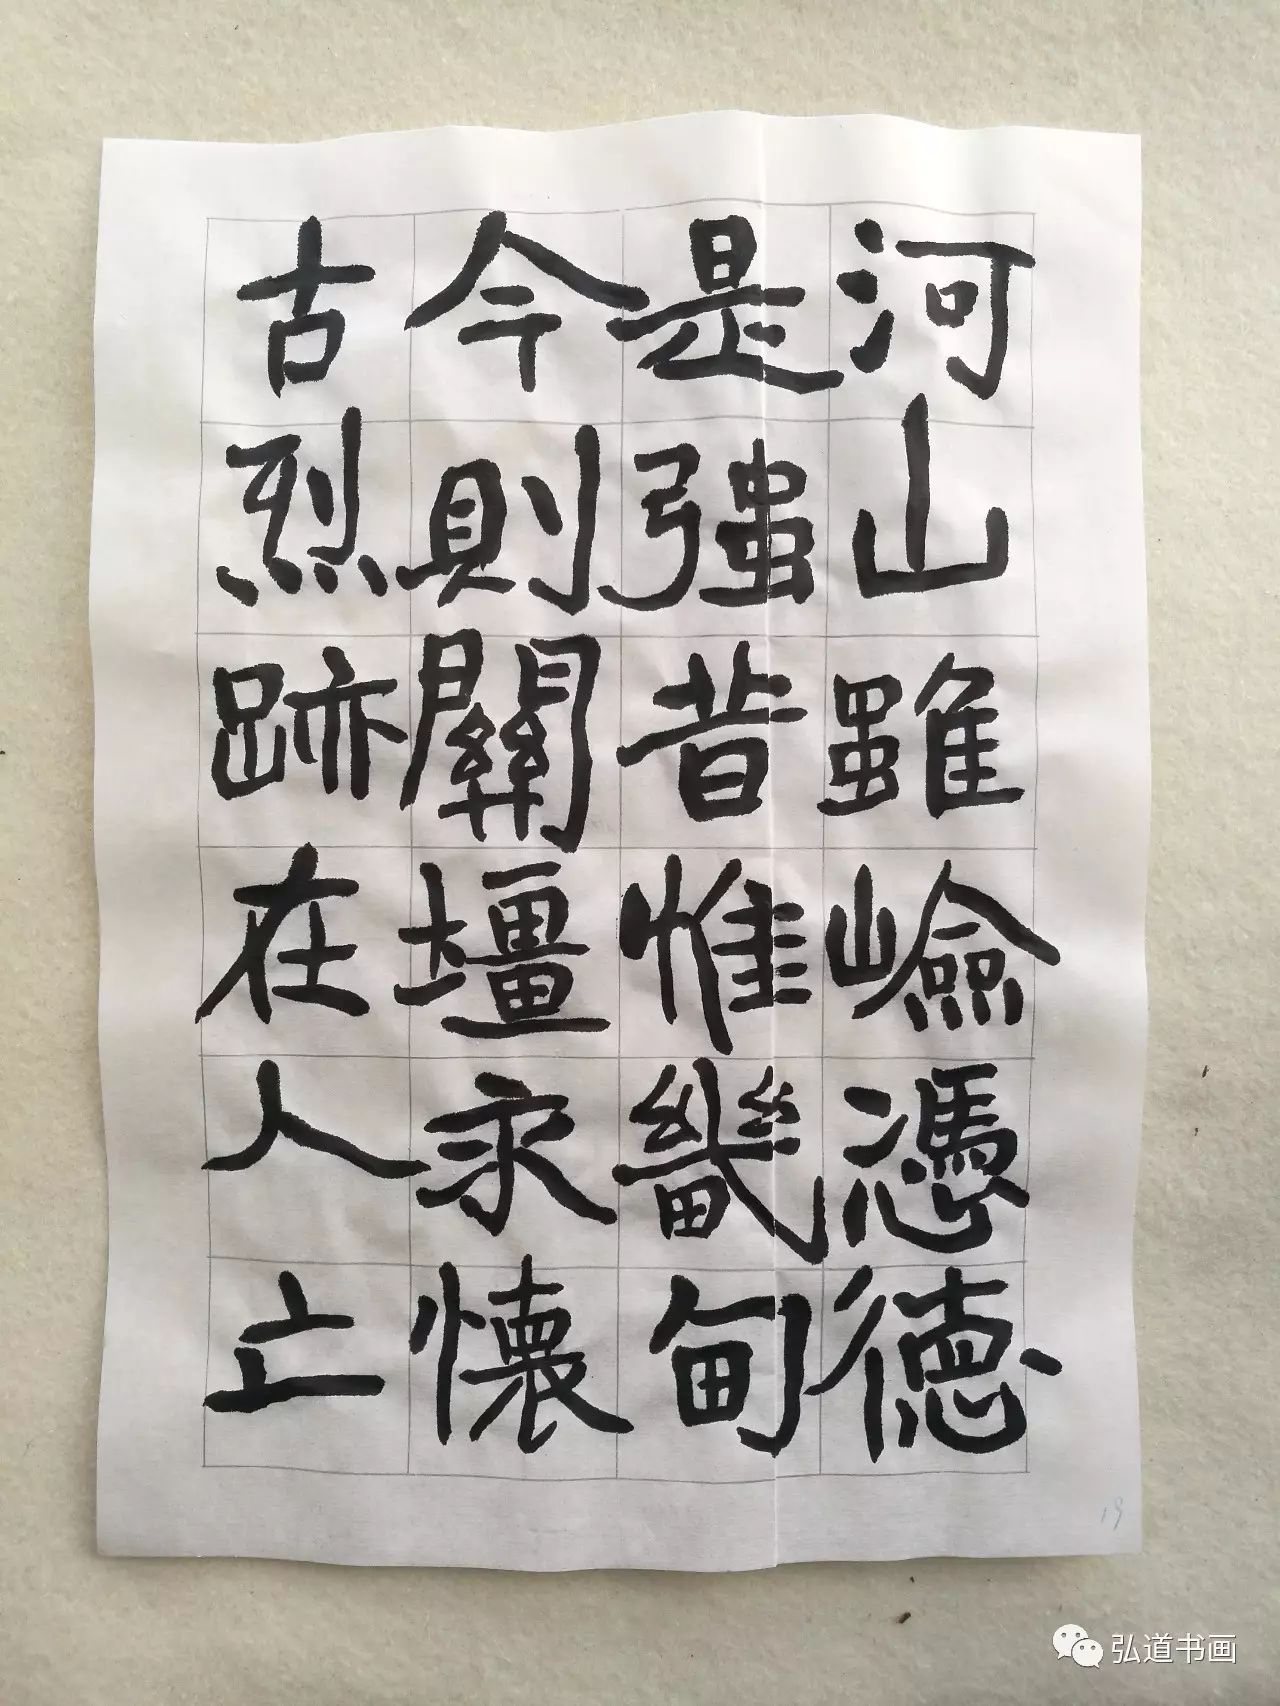 河山雖嶮憑德
是強昔惟畿甸
今則關壃永懷
古烈跡在人亡
19
弘道书画